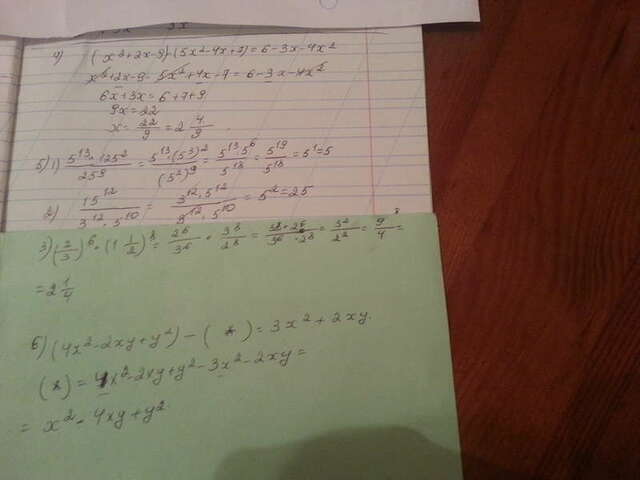 4) (x²+2x-9)-(5x²-4x+7)=6-3x-4x²
x²+2x-9-5x²+4x-7=6-3x-4x²
6x+3x=6+7+9
9x=22
x=22/9=2 4/9
5) 1) 5¹³·125²/25⁹=5¹³·(5³)²/(5²)⁹=5¹³·5⁶/5¹⁸=5¹⁹/5¹⁸=5¹=5
2) 15¹²/3¹²·5¹⁰=3¹²·5¹²/3¹²·5¹⁰=5²=25
3) (2/3)⁶·(1 1/2)⁸=2⁶/3⁶·3⁸/2⁸=3⁸·2⁶/3⁶·2⁸=3²/2²=9/4=
=2 1/4
6) (4x²-2xy+y²)-(*)=3x²+2xy.
(*)=4x²-2xy+y²-3x²-2xy=
=x²-4xy+y²